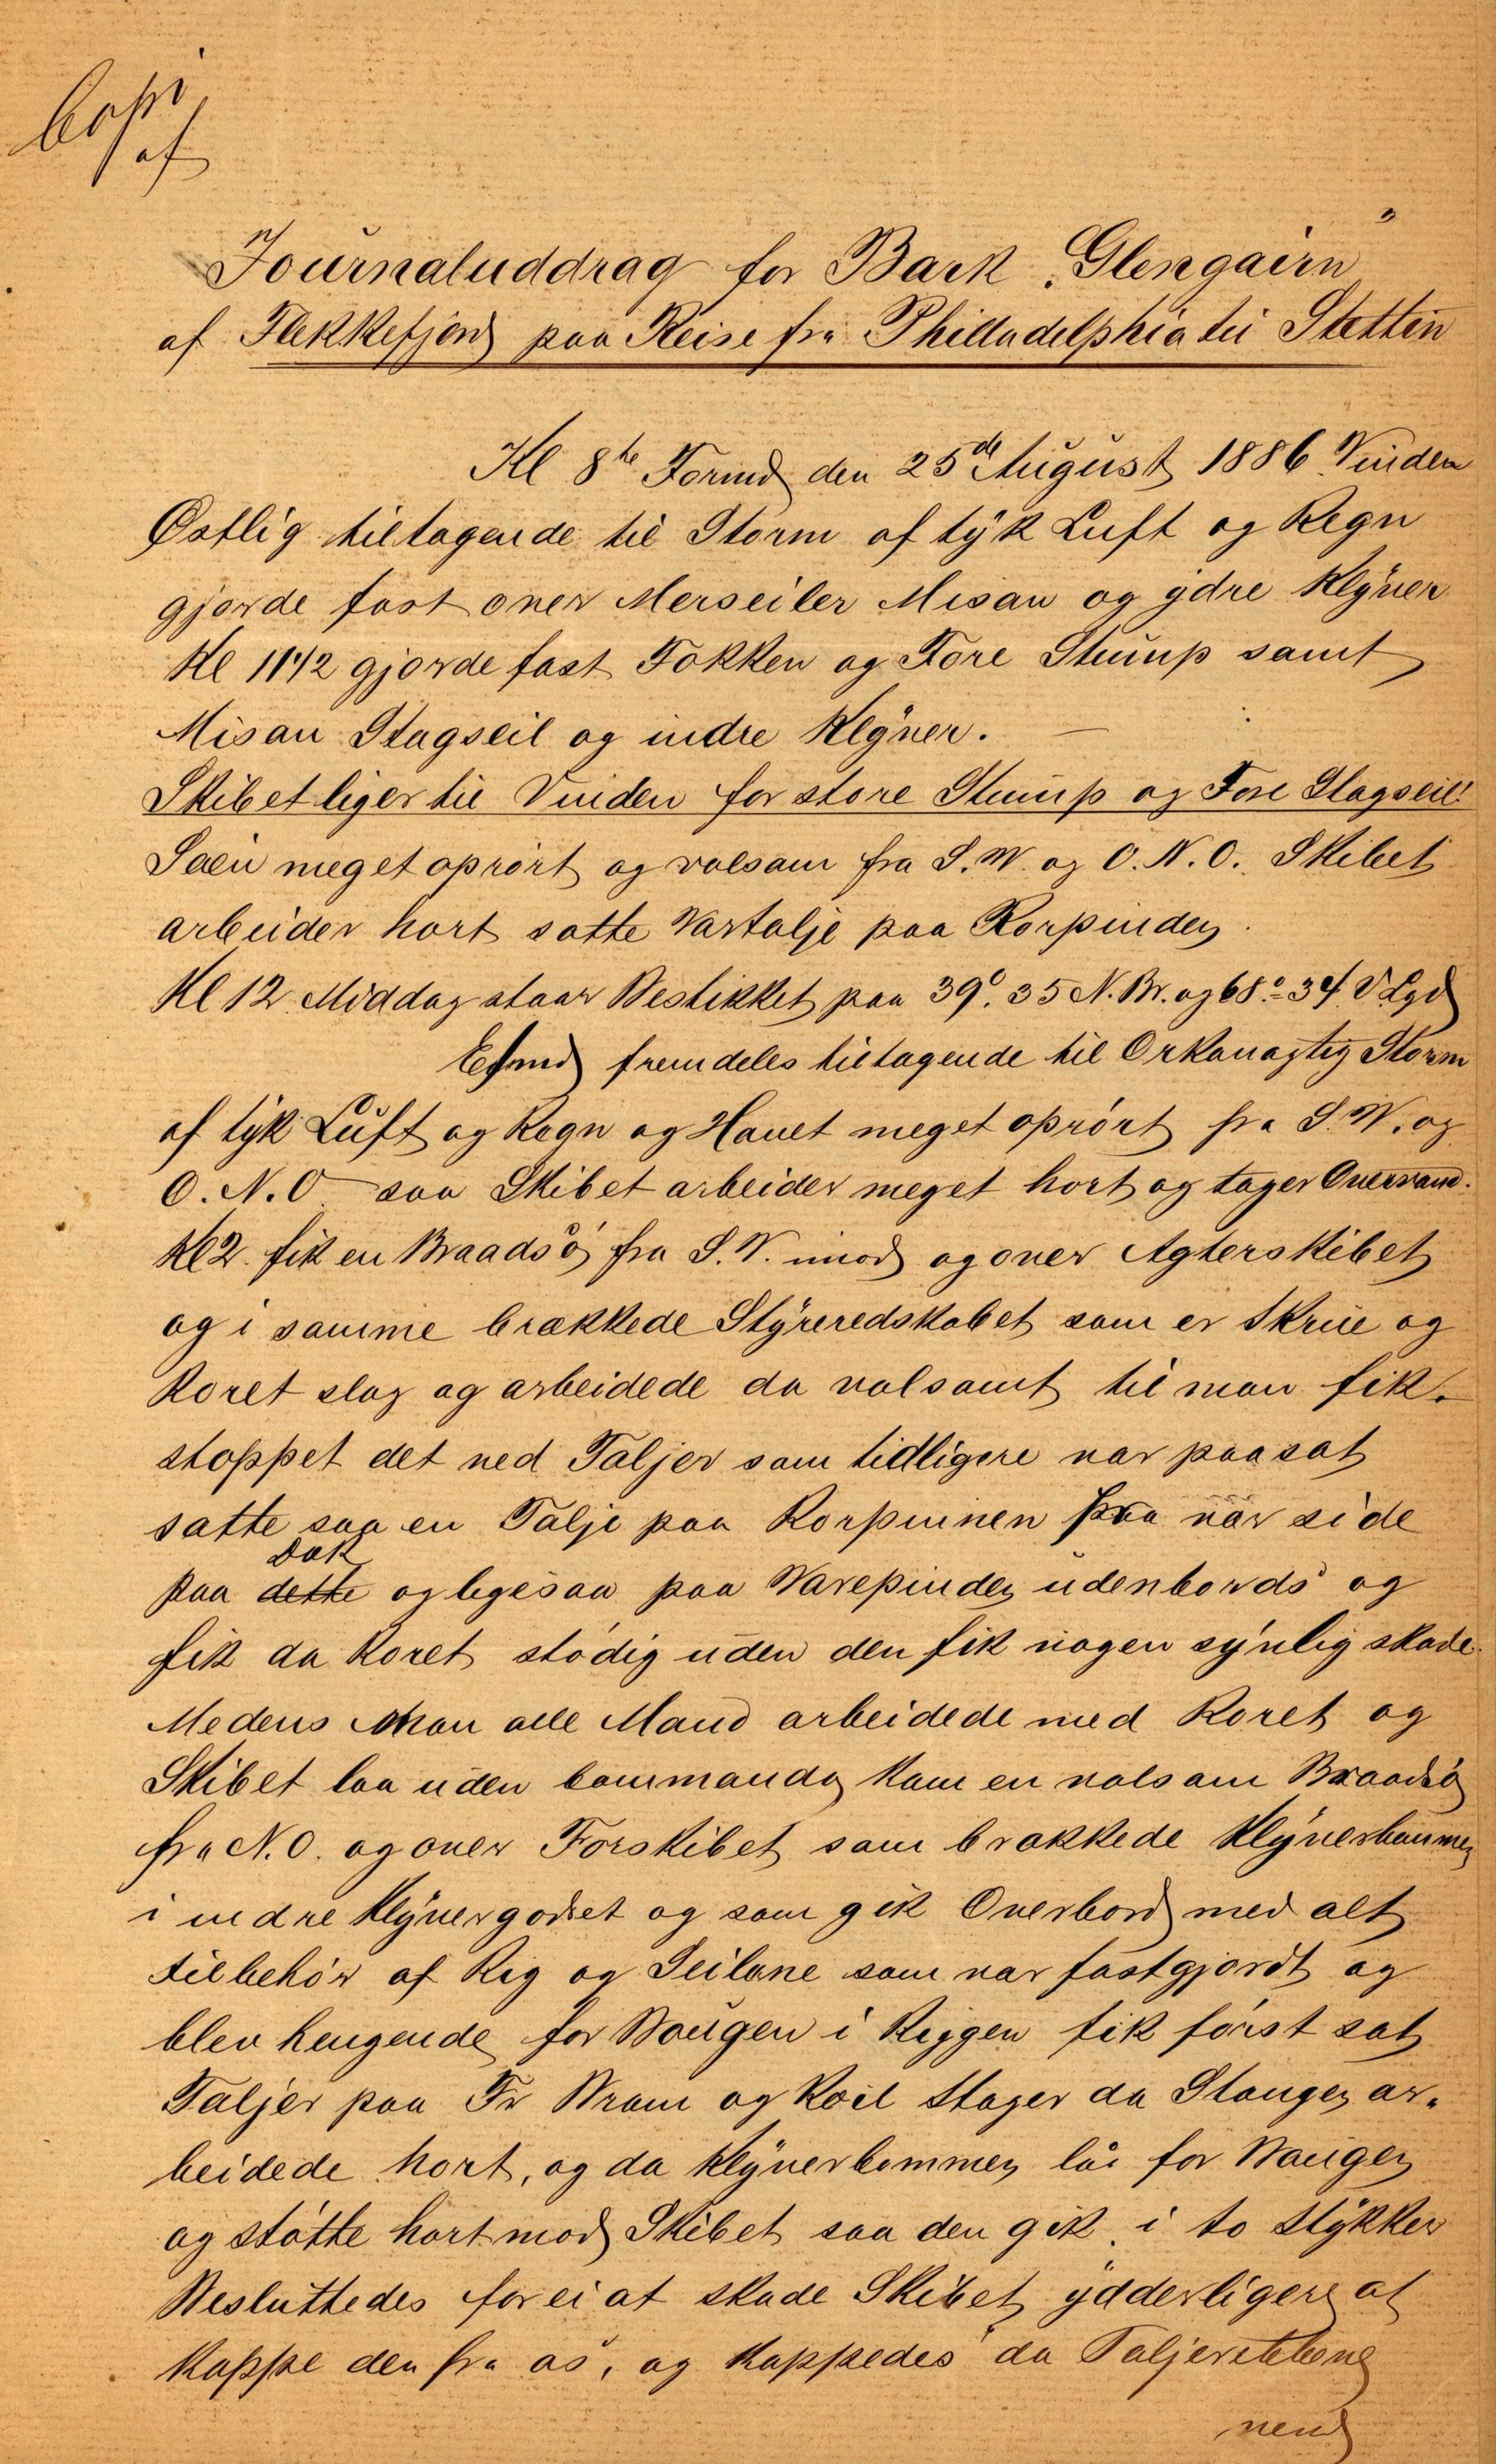 Copi
af
Journaluddrag for Bark „Glengairn"
af Flekkefjord paa Reise fra Philladelphia til Stettin
Kl 8te Formd den 25de August 1886 Vinden
Østlig tiltagende til Storm af tÿk Luft og Regn
gjorde fast over Merseiler Misan og ydre Klÿver
Kl 11 1/2 gjorde fast Fokken og Fore Stump samt
Misan Stagseil og indre Klÿver. —
Skibet liger til Vinden for store Stump og Fore Stagseil.
Søen meget oprört og volsam fra S.W. og O.N.O. Skibet
arbeider hart satte Vartalje paa Rorpinden.
Kl 12 Middag staar Bestikket paa 39° 35 N. Br. og 68° 34 V Lgd
Efmd fremdeles tiltagende til Orkanagtig Storm
af tÿk Luft og Regn og Havet meget oprört fra S.W. og
O.N.O saa Skibet arbeider meget hart og tager Overvand.
Kl 2. fik en Braadsö fra S.V. imod og over Agterskibet
og i samme brækkede Stÿreredskabet som er Skrue og
Roret slog og arbeidede da volsamt til man fik
stoppet det ved Taljer som tidligere var paasat
satte saa en Talje paa Rorpinnen paa vær side
paa dette Dæk og ligesaa paa Varepinden udenbords og
fik da Roret stödig uden den fik nogen sÿnlig skade.
Medens Man alle Mand arbeidede med Roret og
Skibet laa uden Commando kom en volsam Braadsö
fra N.O. og over Forskibet som brækkede Klÿverbaumen
i indre Klÿvergodset og som gik Overbord med alt
tilbehör af Rig og Seilene som var fastgjordt og
blev hengende for Bougen i Riggen fik först sat
Taljer paa Fr Bram og Roil Stager da Stangen ar-
beidede hart, og da Klÿverbommen lå for Bougen
og stötte hart mod Skibet saa den gik i to Stÿkker
Besluttedes for ei at skade Skibet ÿdderligere at
Kappe den fra os, og Kappedes da Taljerebbene
ved